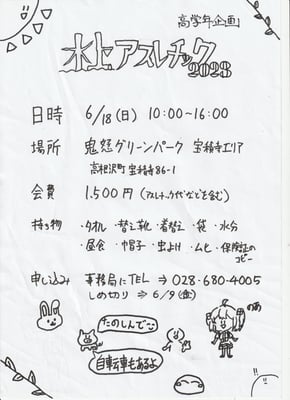 高学年企画
水上アスレチック
2023
日時 6/18(日) 10:00~16:00
場所 鬼怒グリーンパーク 宝積寺エリア
高根沢町宝積寺86-1
会費 1,500円(アスレチック代などを含む)
持ち物 ・タオル ・替え靴 ・着替え ・袋 ・水分
・昼食 ・帽子 ・虫よけ ・ムヒ ・保険証の
コピー
申し込み 事務局にTEL ⇒ 028-680-4005
しめ切り ⇒ 6/9(金)
たのしんで
のあ
自転車もあるよ